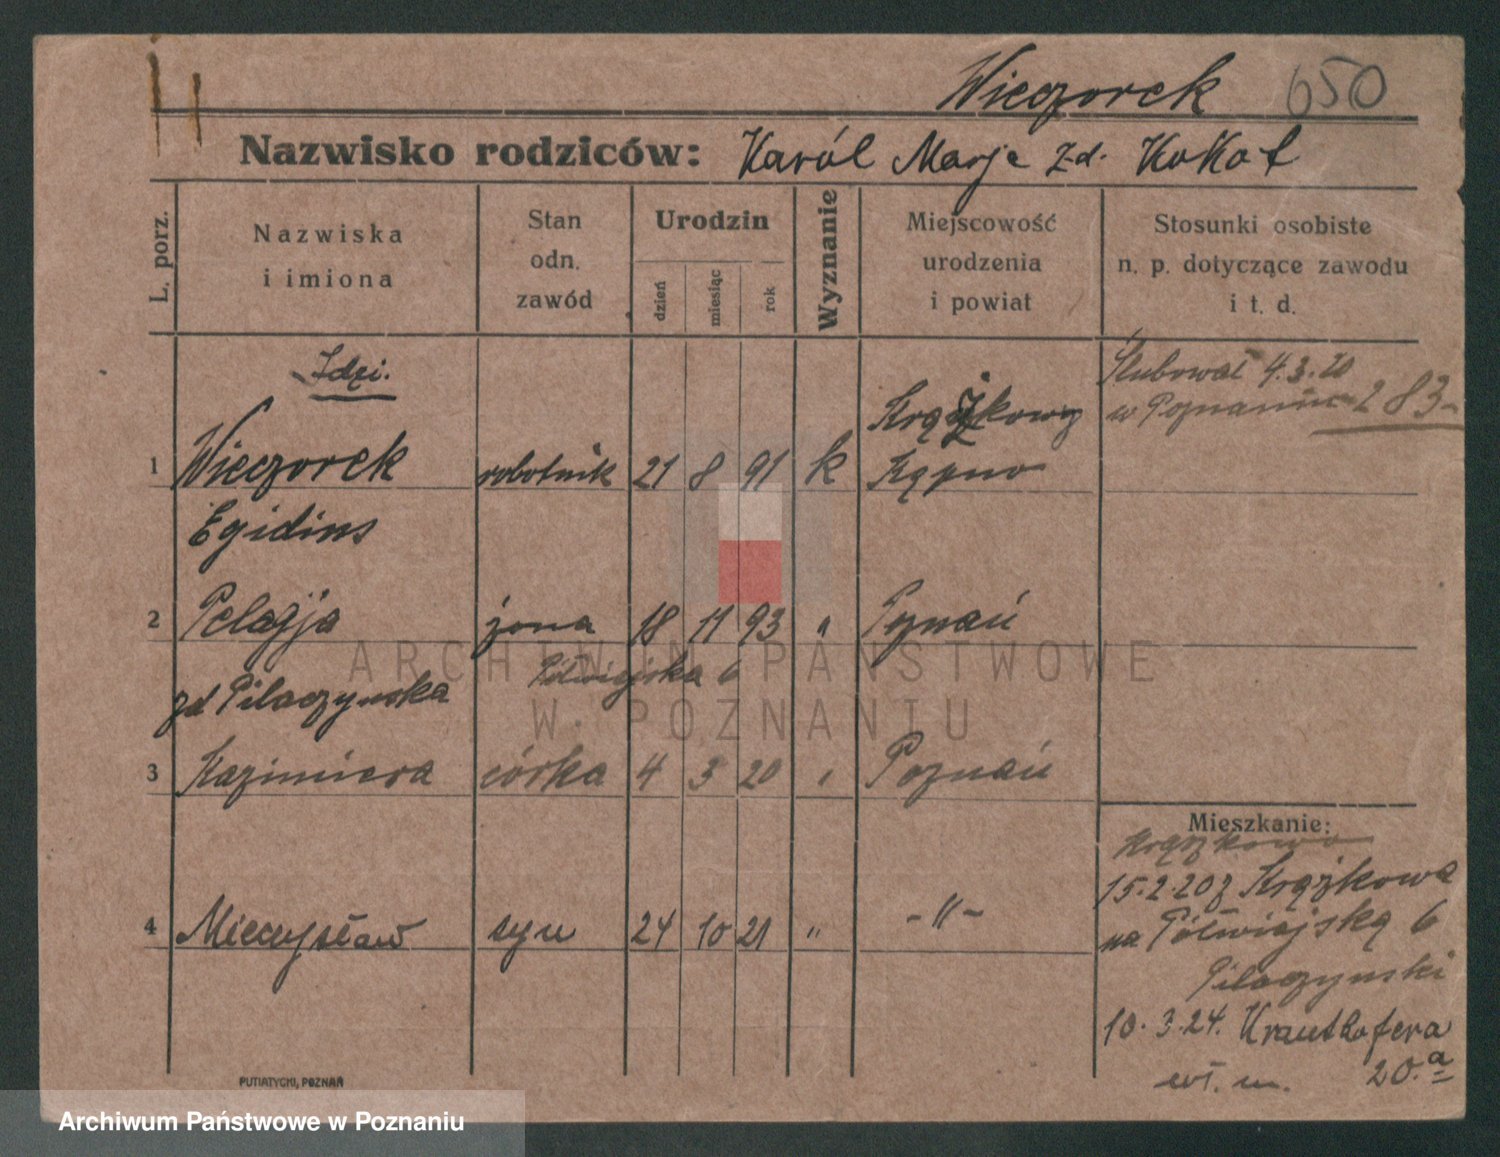 Wieczorek 650
Nazwisko rodziców: Karól Marja z-d. Kokot
L. porz.
Nazwiska
i imiona
Stan
odn.
zawód
Urodzin
dzień
miesiąc
rok
Wyznanie
Miejscowość
urodzenia
i powiat
Stosunki osobiste
n. p. dotyczące zawodu
i t. d.
Idzi.
Ślubował 4.3.20
w Poznaniu 283
Krążkowy
1 Wieczorek robotnik 21 8 91 k Kępno
Egidius
2 Pelagja żona 18 11 93 " Poznań
zd Pilaczynska
Półwiejska 6
3 Kazimiera córka 4 3 20 " Poznań
4 Mieczysław syn 24 10 21 " -"-
Mieszkanie:
Krążkowo
15.2.20 z Krążkowa
na Półwiejską 6
Pilaczynski
10.3.24. Krauthofera
wł. m. 20.a
PUTIATYCKI, POZNAŃ
ARCHIWUM PAŃSTWOWE
W POZNANIU
Archiwum Państwowe w Poznaniu